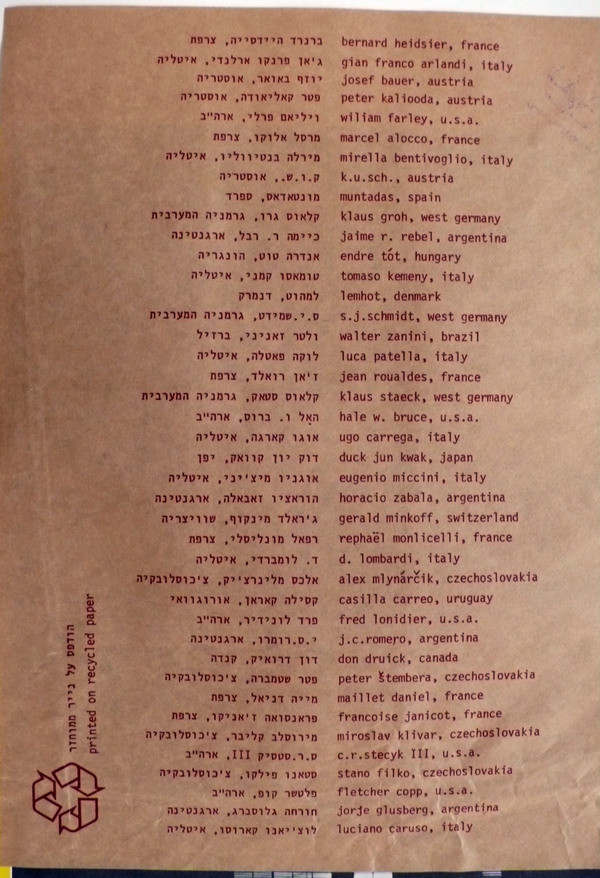 ברנרד היידסייה, צרפת bernard heidsier, france
ג'אן פרנקו ארלנדי, איטליה gian franco arlandi, italy
יוזף באואר, אוסטריה josef bauer, austria
פטר קאליאודה, אוסטריה peter kaliooda, austria
ויליאם פרלי, ארה"ב wiliam farley, u.s.a.
מרסל אלוקו, צרפת marcel alocco, france
מירלה בנטיווליו, איטליה mirella bentivoglio, italy
ק.ו.ש., אוסטריה k.u.sch., austria
מונטאדאס, ספרד muntadas, spain
קלאוס גרו, גרמניה המערבית klaus groh, west germany
כיימה ר. רבל, ארגנטינה jaime r. rebel, argentina
אנדרה טוט, הונגריה endre tót, hungary
טומאסו קמני, איטליה tomaso kemeny, italy
למהוט, דנמרק lemhot, denmark
ס.י.שמידט, גרמניה המערבית s.j.schmidt, west germany
ולטר זאניני, ברזיל walter zanini, brazil
לוקה פאטלה, איטליה luca patella, italy
ז'אן רואלד, צרפת jean roualdes, france
קלאוס סטאק, גרמניה המערבית klaus staeck, west germany
האל ו. ברוס, ארה"ב hale w. bruce, u.s.a.
אוגו קארגה, איטליה ugo carrega, italy
דוק יון קוואק, יפן duck jun kwak, japan
אוגניו מיצ'יני, איטליה eugenio miccini, italy
הוראציו זאבאלה, ארגנטינה horacio zabala, argentina
ג'ראלד מינקוף, שוויצריה gerald minkoff, switzerland
רפאל מונליסלי, צרפת rephaël monlicelli, france
ד. לומברדי, איטליה d. lombardi, italy
אלכס מלינרצ'יק, צ'כוסלובקיה alex mlynárčik, czechoslovakia
קסילה קאראו, אורוגוואי casilla carreo, uruguay
פרד לונידייר, ארה"ב fred lonidier, u.s.a.
י.ס.רומרו, ארגנטינה j.c.romero, argentina
דון דרואיק, קנדה don druick, canada
פטר שטמברה, צ'כוסלובקיה peter štembera, czechoslovakia
מייה דניאל, צרפת maillet daniel, france
פראנסואה ז'אניקו, צרפת francoise janicot, france
מירוסלב קליבר, צ'כוסלובקיה miroslav klivar, czechoslovakia
ס.ר.סטסיק III, ארה"ב c.r.stecyk III, u.s.a.
סטאנו פילקו, צ'כוסלובקיה stano filko, czechoslovakia
פלטשר קופ, ארה"ב fletcher copp, u.s.a.
חורחה גלוסברג, ארגנטינה jorje glusberg, argentina
לוצ'יאנו קארוסו, איטליה luciano caruso, italy
הודפס על נייר ממוחזר
printed on recycled paper